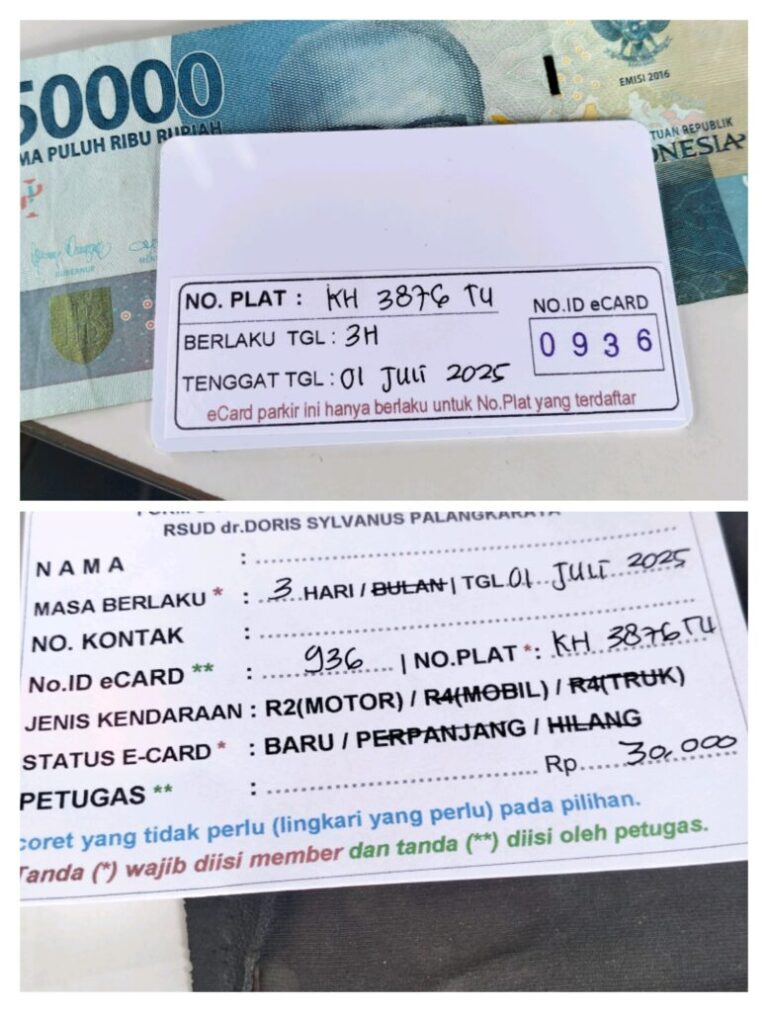 50000
EMISI 2016
MA PULUH RIBU RUPIAH
TUAN REPUBLIK
ONESIA
GUBERNUR
NO. PLAT : KH 3876 TU
NO.ID eCARD
BERLAKU TGL : 3H
0 9 3 6
TENGGAT TGL : 01 JULI 2025
eCard parkir ini hanya berlaku untuk No.Plat yang terdaftar
RSUD dr.DORIS SYLVANUS PALANGKARAYA
NAMA :
MASA BERLAKU * : 3 HARI / BULAN | TGL. 01 JULI 2025
NO. KONTAK :
No.ID eCARD ** : 936 | NO.PLAT *: KH 3876 TU
JENIS KENDARAAN : R2(MOTOR) / R4(MOBIL) / R4(TRUK)
STATUS E-CARD * : BARU / PERPANJANG / HILANG
PETUGAS ** : Rp. 30.000
coret yang tidak perlu (lingkari yang perlu) pada pilihan.
Tanda (*) wajib diisi member dan tanda (**) diisi oleh petugas.